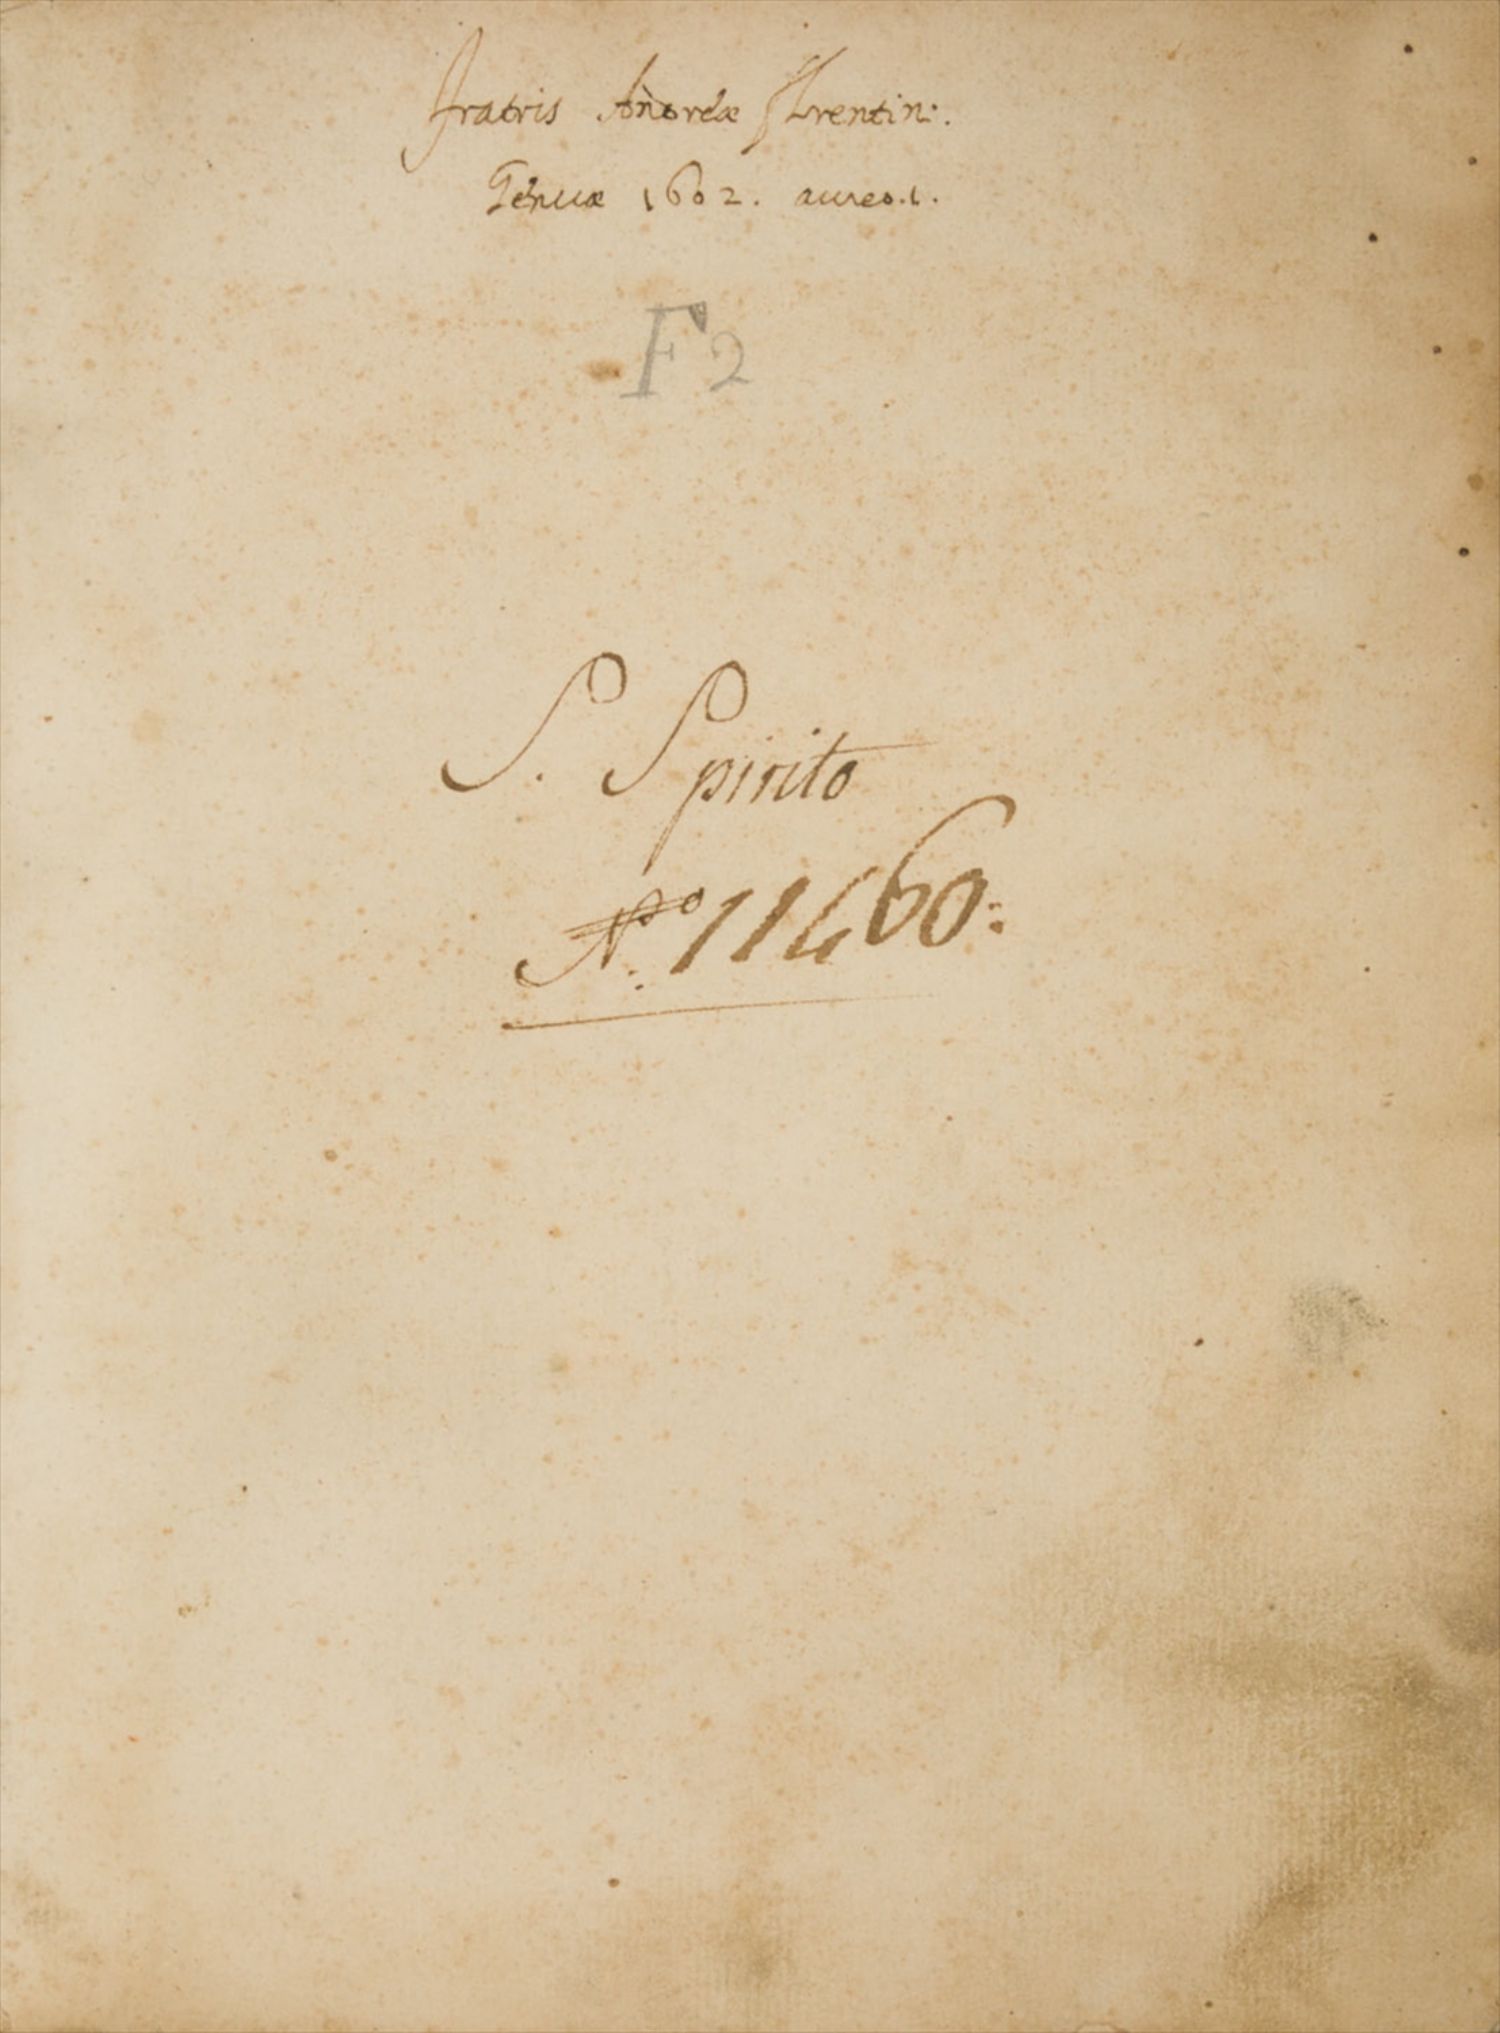 Fratris Andreæ Florentin:.
Genuæ 1602. aureo.1.
F2
S. Spirito
No: 11460: